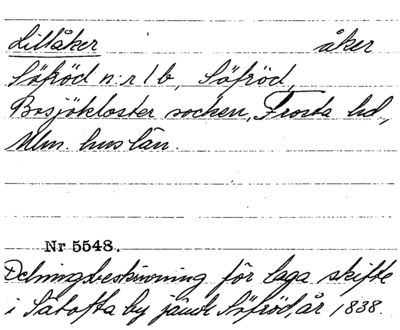 Lillåker åker
Söfröd n:r 1 b, Söfröd,
Bosjökloster socken, Frosta hd,
Mlm. hus län.
Nr 5548.
Delningsbeskrivning för laga skifte
i Sätofta by jämte Söfröd, år 1838.